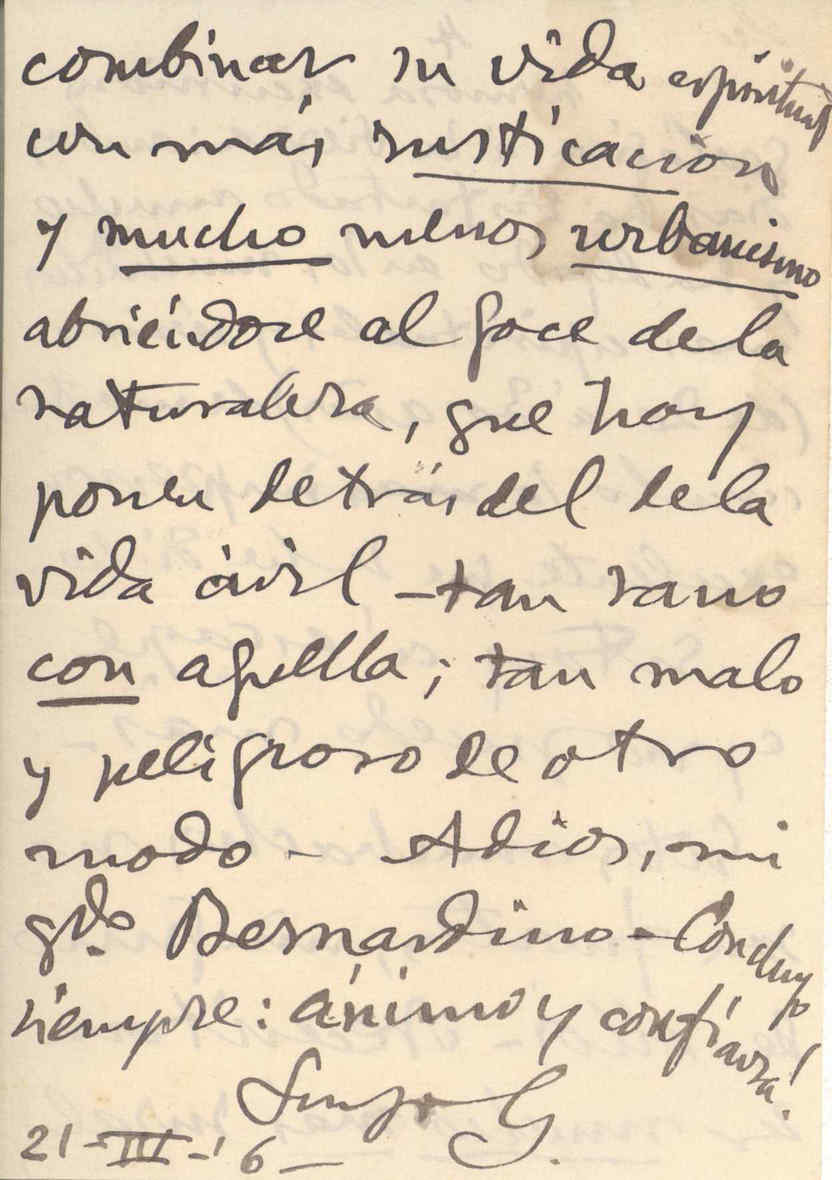 combinar su vida espiritual
con más rusticación
y mucho menos urbanismo
abriéndose al goce de la
naturaleza, que hay
poner detrás del de la
vida civil – tan sano
con aquella; tan malo
y peligroso de otro
modo – Adios, mi
qdo. Bernardino – Concluyo
siempre: ánimo y confianza!
Suyo G.
21-III-16–